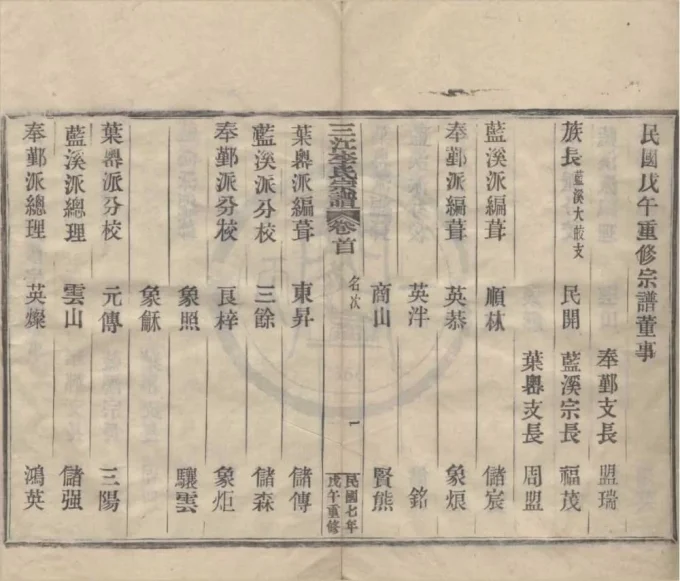 民國戊午重修宗譜董事
奉鄞支長 盟瑞
族長 藍溪大㽛支 民開 藍溪宗長 福茂
葉嶴支長 周盟
藍溪派編葺 順林 儲宸
奉鄞派編葺 英恭 象烺
英泮 銘
商山 賢熊
三江李氏宗譜 卷首 名次 一 民國七年戊午重修
葉嶴派編葺 東昇 儲傳
藍溪派分校 三餘 儲森
奉鄞派分校 良梓 象炬
象照 驤雲
象龢
葉嶴派分校 元傳 三陽
藍溪派總理 雲山 儲强
奉鄞派總理 英燦 鴻英